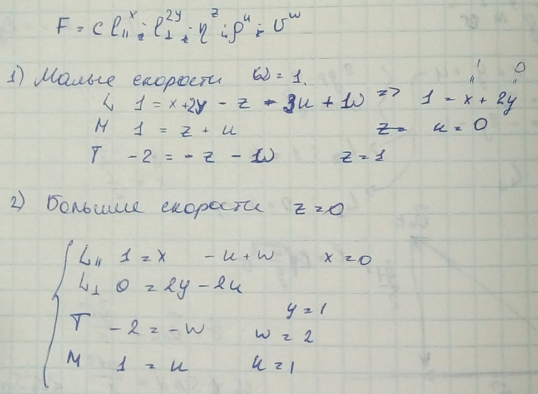 F = c l_{||}^{x} ; l_{⊥}^{2y} ; η^{z} ; ρ^{u} ; v^{w}
1) Малые скорости ω = 1. 1 0
L 1 = x + 2y - z - 3u + 1ω => 1 = x + 2y
M 1 = z + u z= u = 0
T -2 = -z - 1ω z = 1
2) Большие скорости z = 0
L_{||} 1 = x - u + w x = 0
L_{⊥} 0 = 2y - 2u
y = 1
T -2 = -w w = 2
M 1 = u u = 1